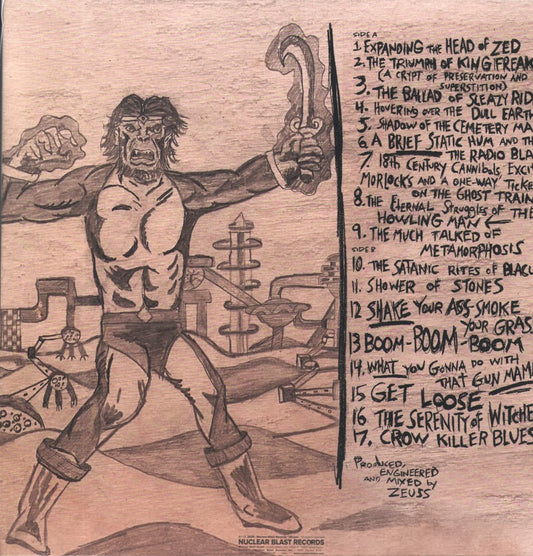 SIDE A
1. EXPANDING THE HEAD OF ZED
2. THE TRIUMPH OF KING FREAK
(A CRYPT OF PRESERVATION AND
SUPERSTITION)
3. THE BALLAD OF SLEAZY RID
4. HOVERING OVER THE DULL EARTH
5. SHADOW OF THE CEMETERY MA
6. A BRIEF STATIC HUM AND TH
THE RADIO BLA
7. 18th CENTURY CANNIBALS, EXCI
MORLOCKS AND A ONE-WAY TICKE
ON THE GHOST TRAIN
8. THE ETERNAL STRUGGLES OF THE
HOWLING MAN
9. THE MUCH TALKED OF
METAMORPHOSIS
SIDE B
10. THE SATANIC RITES OF BLACU
11. SHOWER OF STONES
12 SHAKE YOUR ASS-SMOKE
YOUR GRAS
13 BOOM-BOOM-BOOM
14. WHAT YOU GONNA DO WITH
THAT GUN MAM
15 GET LOOSE
16 THE SERENITY OF WITCHE
17. CROW KILLER BLUES
PRODUCED,
ENGINEERED
AND MIXED by
ZEUSS
NUCLEAR BLAST RECORDS